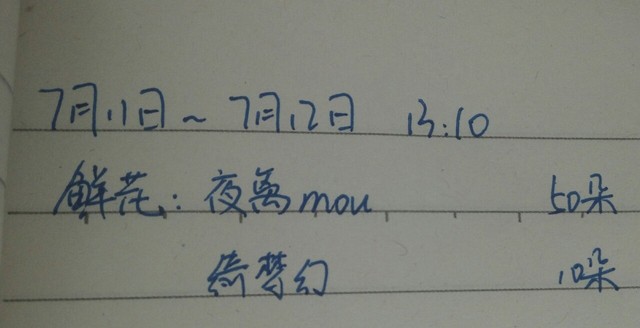 7月11日~7月12日 13:10
鲜花:夜离mou 50朵
绮梦幻 10朵